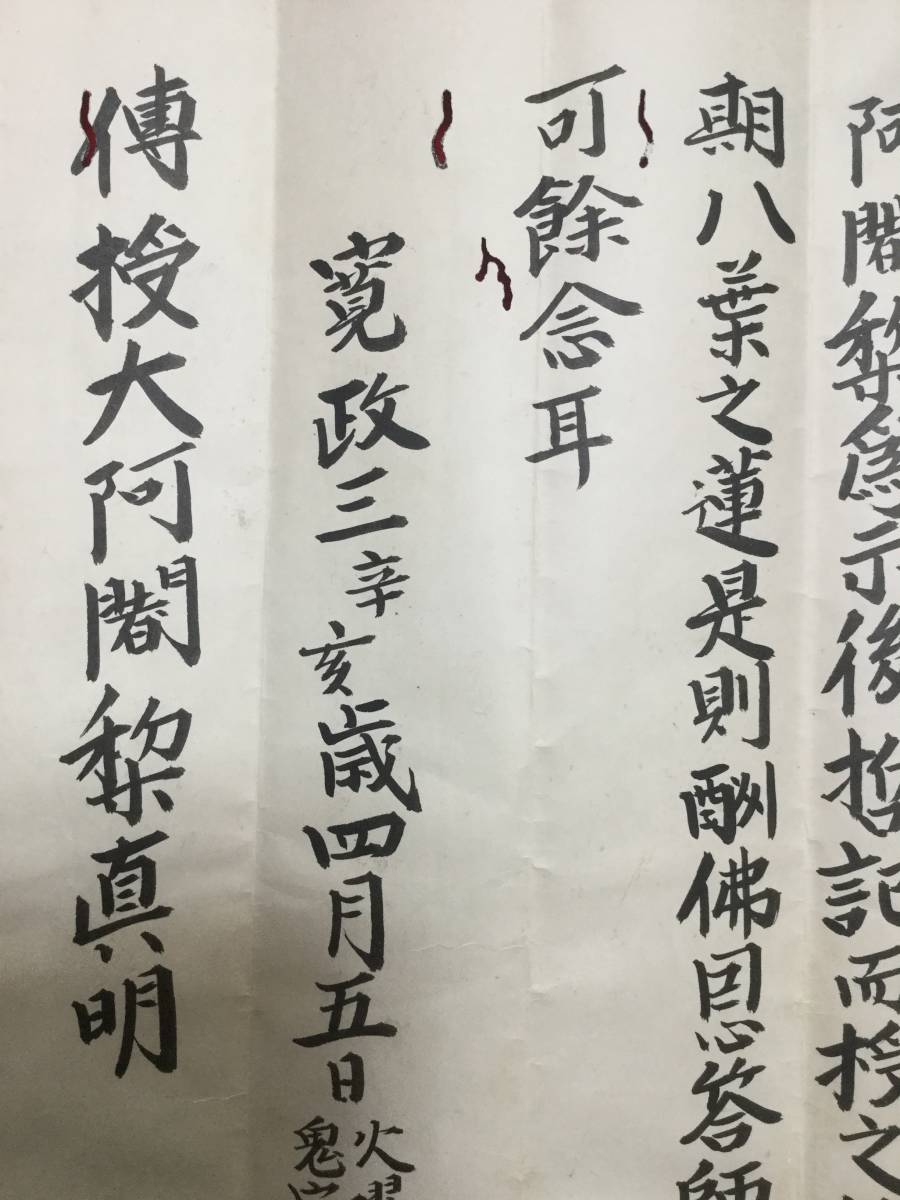 阿闍梨為示後哲記而授之
期八葉之蓮是則酬佛恩答師
可餘念耳
寛政三辛亥歳四月五日火曜鬼宿
傳授大阿闍梨真明